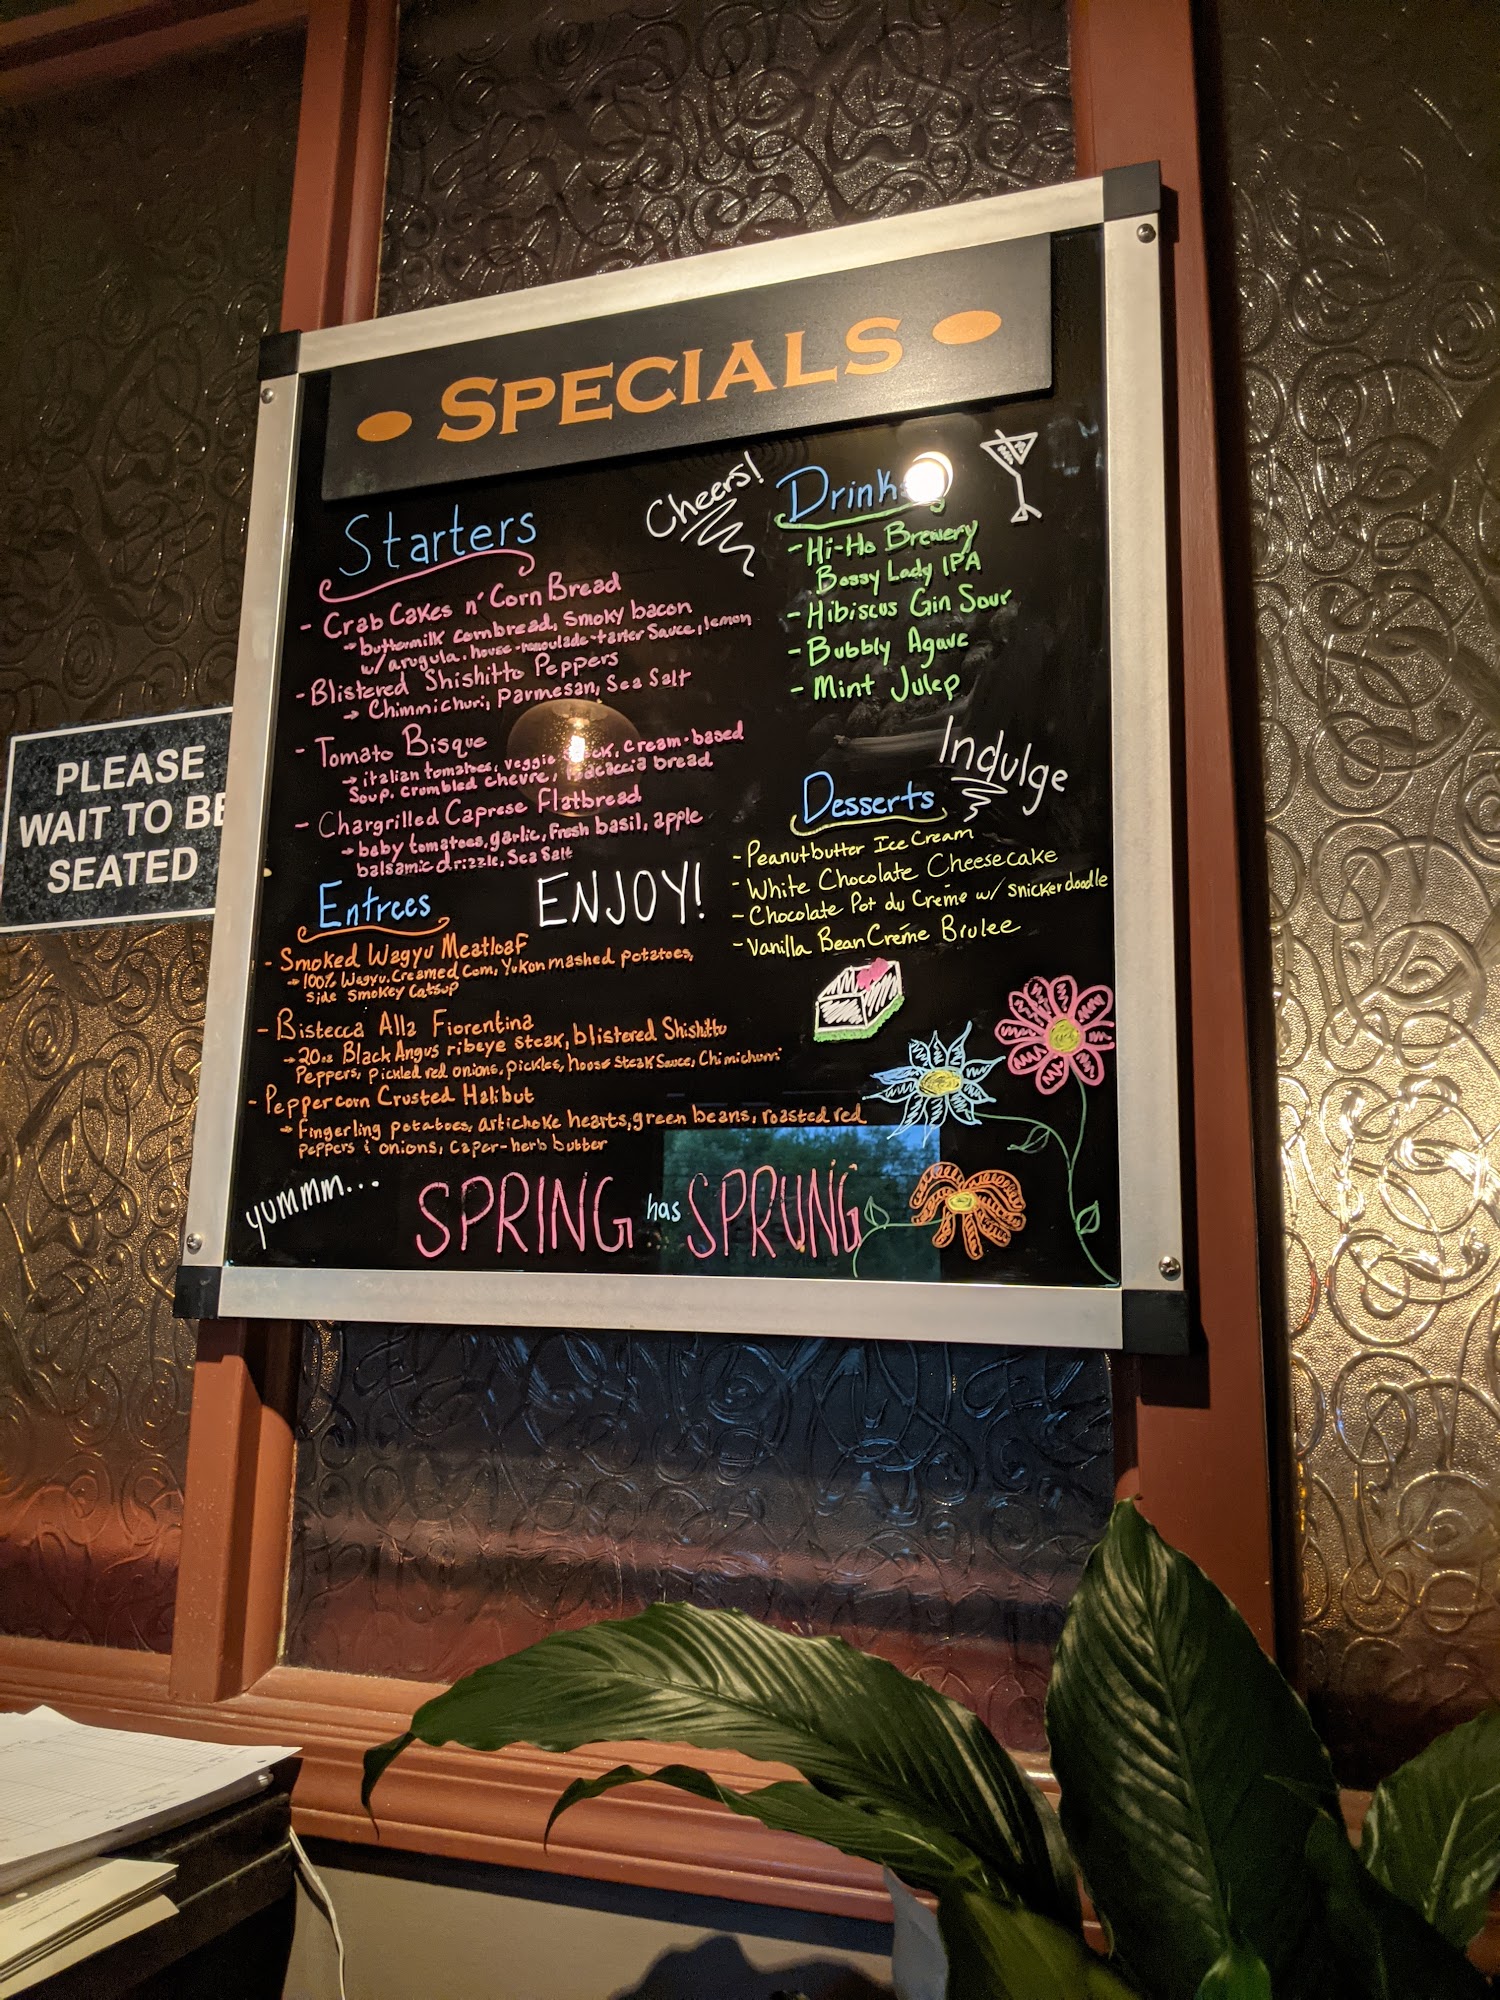 SPECIALS
Cheers!
Starters
- Crab Cakes n' Corn Bread
→ buttermilk cornbread, smoky bacon
w/ arugula, house-remoulade-tarter Sauce, lemon
- Blistered Shishitto Peppers
→ Chimmichuri, Parmesan, Sea Salt
- Tomato Bisque
→ italian tomatoes, veggie cream-based
Soup, crumbled chevre, bread
- Chargrilled Caprese Flatbread
→ baby tomatoes, garlic, Fresh basil, apple
balsamic drizzle, Sea Salt
Drinks
- Hi-Ho Brewery
Bossy Lady IPA
- Hibiscus Gin Sour
- Bubbly Agave
- Mint Julep
Indulge
Desserts
- Peanutbutter Ice Cream
- White Chocolate Cheesecake
- Chocolate Pot du Créme w/ snickerdoodle
- Vanilla Bean Créme Brulee
ENJOY!
Entrees
- Smoked Wagyu Meatloaf
→ 100% Wagyu, Creamed Corn, Yukon mashed potatoes,
side smokey Catsup
- Bistecca Alla Fiorentina
→ 20oz Black Angus ribeye steak, blistered Shishitto
Peppers, pickled red onions, pickles, house Steak Sauce, Chimichurri
- Peppercorn Crusted Halibut
→ fingerling potatoes, artichoke hearts, green beans, roasted red
peppers & onions, caper-herb butter
yummm...
SPRING has SPRUNG
PLEASE
WAIT TO BE
SEATED